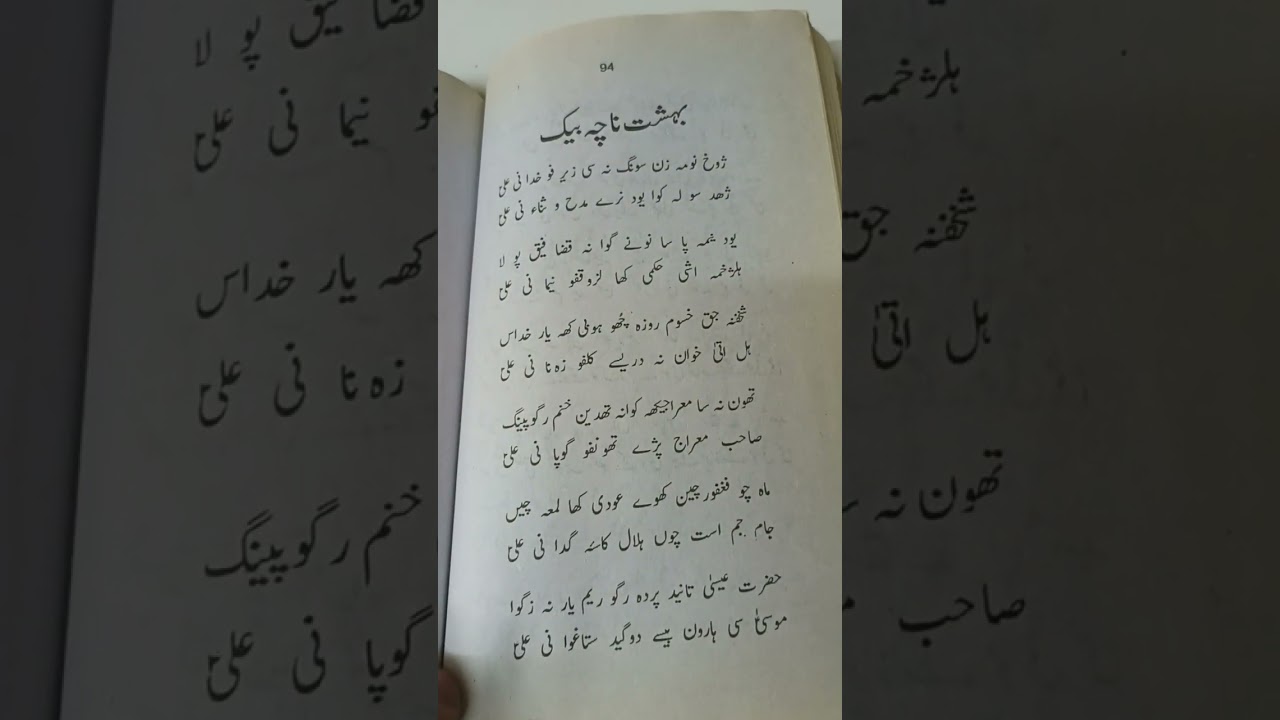 94
بہشت ناچہ بیک
ژوخ نومہ زن سونگ نہ سی زیر فو خدا نی علیؑ
ژھد سو لہ کوا یود نرے مدح و ثناء نی علیؑ
یود ینمہ پا سا نونے گوا نہ قضا فیق پو لا
ہلژخمہ اشی حکمی کھا لزوقفو نیما نی علیؑ
شخنہ جق خسوم روزہ چھو ہونی کھہ یار خداس
ہل اتیٰ خوان نہ دریسے کلفو زہ نا نی علیؑ
تھون نہ سا معراجیکھہ کوانہ تھدین ختم رگو پینگ
صاحب معراج پڑے تھونفو گوپا نی علیؑ
ماہ چو فغفور چین کھوے عودی کھا لمعہ چیں
جام جم است چوں ہلال کاسۂ گدا نی علیؑ
حضرت عیسیٰ تانید پردہ رگو ریم یار نہ زگوا
موسیٰؑ سی ہارون ہیسے دوگید ستاغوا نی علیؑ